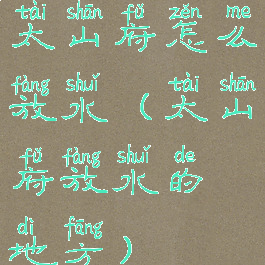 tài shān fǔ zěn me
太山府怎么
fàng shuǐ tài shān
放水（太山
fǔ fàng shuǐ de
府放水的
dì fāng
地方）